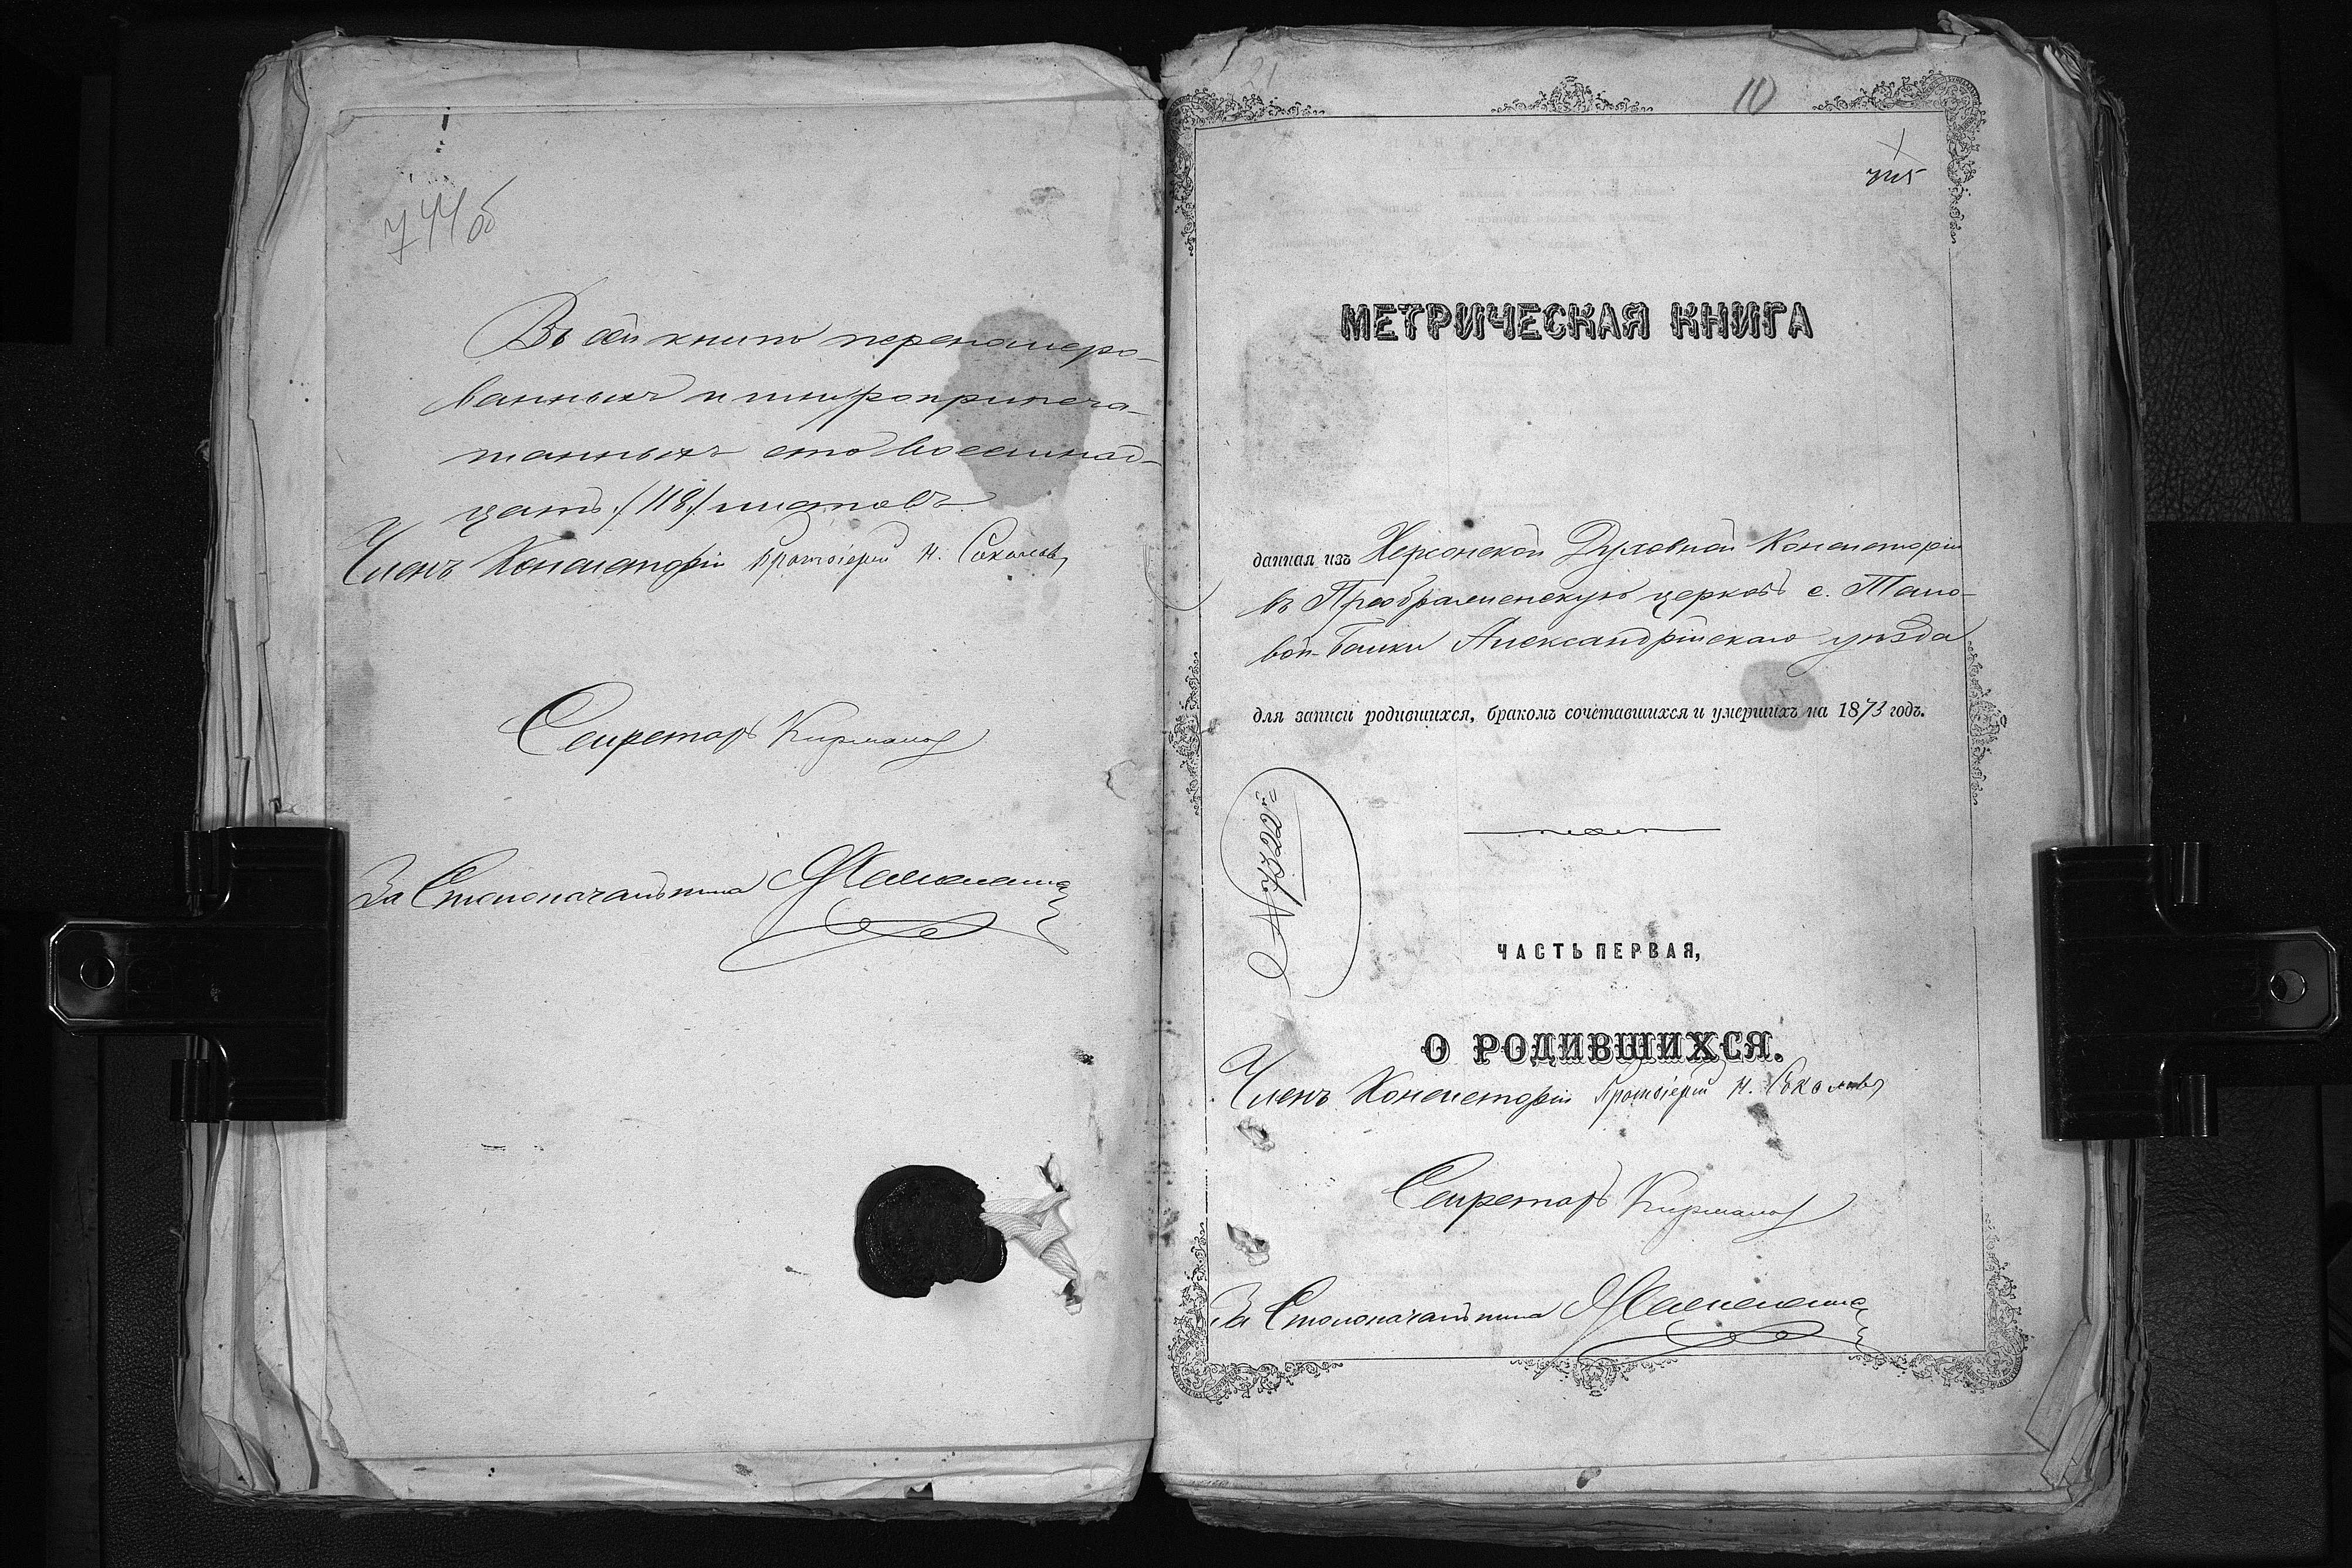 744 об
Въ сей книгѣ перенумеро-
ванныхъ и шнуроприпеча-
танныхъ сто восемнад-
цать /118/ листовъ
Членъ Консисторіи Протоіерей Н. Соколовъ
Секретарь
За Столоначальника
10
745
МЕТРИЧЕСКАЯ КНИГА
данная изъ Херсонской Духовной Консисторіи
въ Преображенскую церковь с.
вой-Балки Александрійскаго уѣзда
для записи родившихся, бракомъ сочетавшихся и умершихъ на 1873 годъ.
№ 7322
ЧАСТЬ ПЕРВАЯ,
О РОДИВШИХСЯ.
Членъ Консисторіи Протоіерей Н. Соколовъ
Секретарь
За Столоначальника